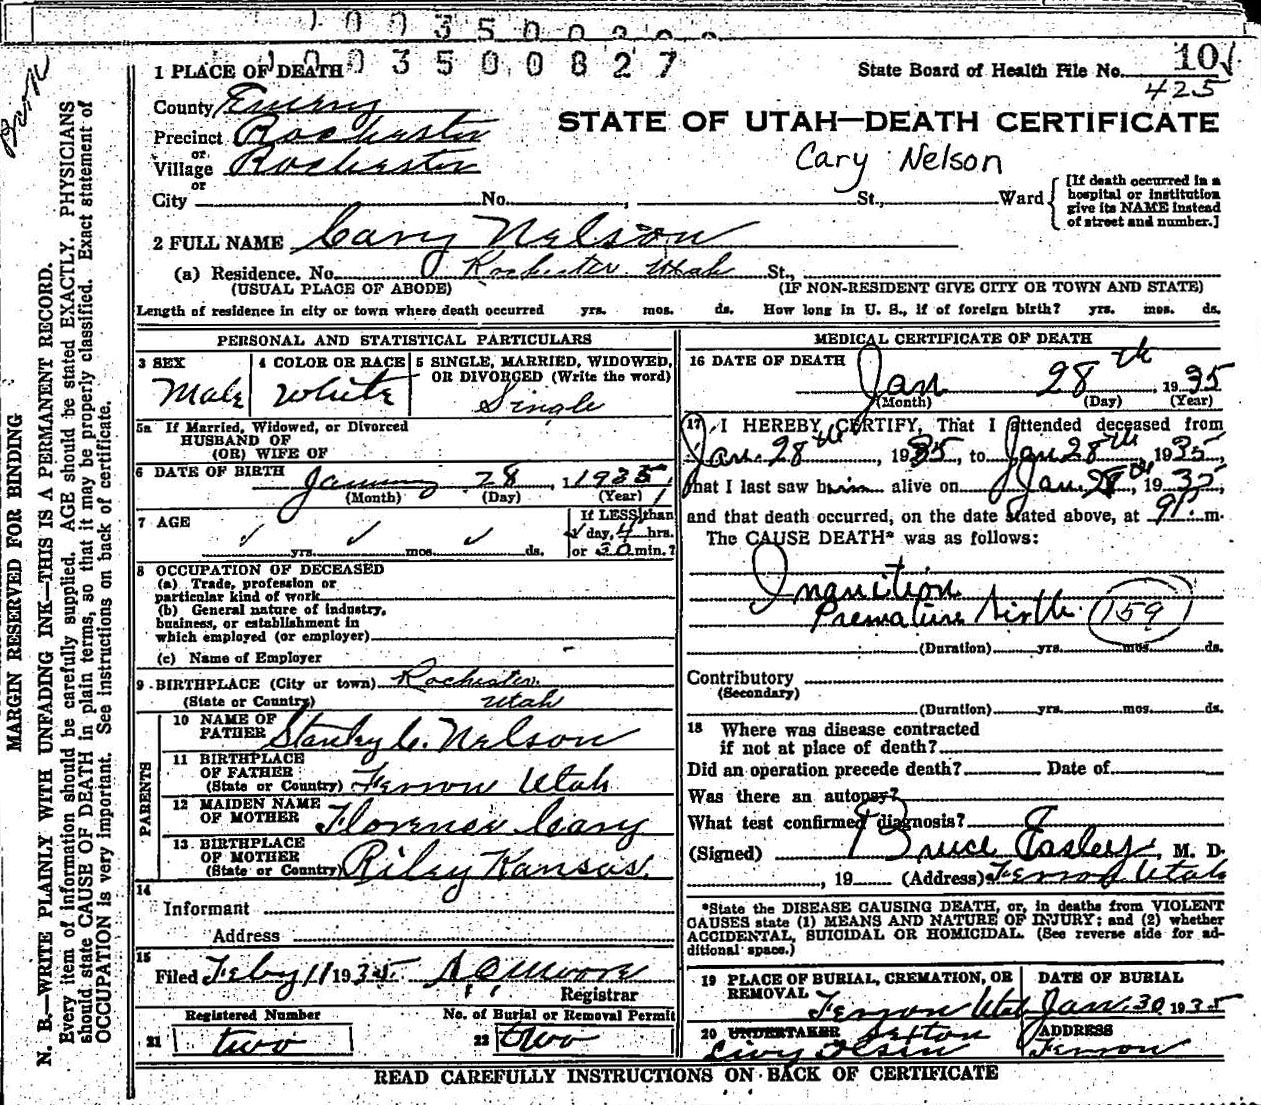 1003500827
1 PLACE OF DEATH
State Board of Health File No. 10
425
County Emery
Precinct Rochester
or
Village Rochester
or
City No. , St., Ward
STATE OF UTAH—DEATH CERTIFICATE
Cary Nelson
[If death occurred in a
hospital or institution
give its NAME instead
of street and number.]
2 FULL NAME Cary Nelson
(a) Residence. No. Rochester Utah St.,
(USUAL PLACE OF ABODE) (IF NON-RESIDENT GIVE CITY OR TOWN AND STATE)
Length of residence in city or town where death occurred yrs. mos. ds. How long in U. S., if of foreign birth? yrs. mos. ds.
PERSONAL AND STATISTICAL PARTICULARS
3 SEX 4 COLOR OR RACE 5 SINGLE, MARRIED, WIDOWED,
OR DIVORCED (Write the word)
Male White Single
5a If Married, Widowed, or Divorced
HUSBAND OF
(OR) WIFE OF
6 DATE OF BIRTH January 28, 1935
(Month) (Day) (Year)
7 AGE
yrs. mos. ds.
If LESS than
1 day, 4 hrs.
or 30 min.?
8 OCCUPATION OF DECEASED
(a) Trade, profession or
particular kind of work
(b) General nature of industry,
business, or establishment in
which employed (or employer)
(c) Name of Employer
9 BIRTHPLACE (City or town) Rochester
(State or Country) Utah
PARENTS
10 NAME OF
FATHER Stanley C. Nelson
11 BIRTHPLACE
OF FATHER
(State or Country) Ferron Utah
12 MAIDEN NAME
OF MOTHER Florence Cary
13 BIRTHPLACE
OF MOTHER
(State or Country) Riley Kansas.
14
Informant
Address
15
Filed Feby 1 1935 A O Moore
Registrar
Registered Number No. of Burial or Removal Permit
21 two 22 two
MEDICAL CERTIFICATE OF DEATH
16 DATE OF DEATH
Jan 28th, 1935
(Month) (Day) (Year)
17 I HEREBY CERTIFY, That I attended deceased from
Jan. 28th, 1935, to Jan 28th, 1935,
that I last saw him alive on Jan. 28th, 1935,
and that death occurred, on the date stated above, at 9 m.
The CAUSE DEATH* was as follows:
Inanition
Premature birth 159
(Duration) yrs. mos. ds.
Contributory
(Secondary)
(Duration) yrs. mos. ds.
18 Where was disease contracted
if not at place of death?
Did an operation precede death? Date of
Was there an autopsy?
What test confirmed diagnosis?
(Signed) Bruce Easley, M. D.
, 19 (Address) Ferron Utah
*State the DISEASE CAUSING DEATH, or, in deaths from VIOLENT
CAUSES state (1) MEANS AND NATURE OF INJURY; and (2) whether
ACCIDENTAL, SUICIDAL OR HOMICIDAL. (See reverse side for ad-
ditional space.)
19 PLACE OF BURIAL, CREMATION, OR
REMOVAL Ferron Utah
DATE OF BURIAL
Jan. 30 1935
20 UNDERTAKER Sexton
Levy Olsen
ADDRESS
Ferron
READ CAREFULLY INSTRUCTIONS ON BACK OF CERTIFICATE
MARGIN RESERVED FOR BINDING
N. B.—WRITE PLAINLY WITH UNFADING INK—THIS IS A PERMANENT RECORD.
Every item of information should be carefully supplied. AGE should be stated EXACTLY. PHYSICIANS
should state CAUSE OF DEATH in plain terms, so that it may be properly classified. Exact statement of
OCCUPATION is very important. See instructions on back of certificate.